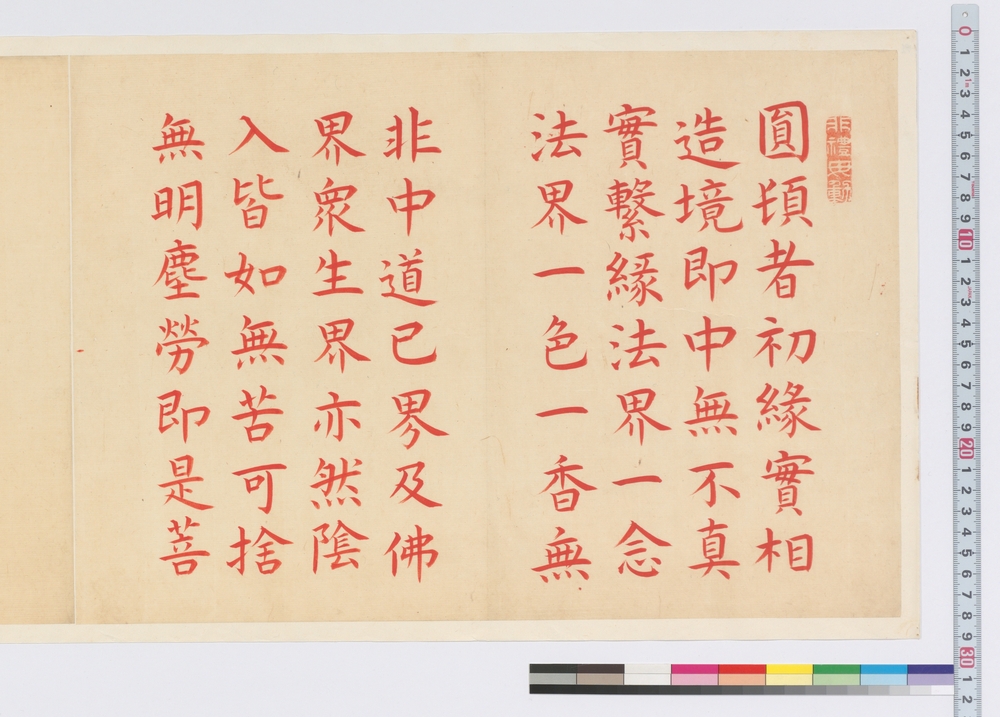 非禮毋動
圓頓者初緣實相
造境即中無不真
實繫緣法界一念
法界一色一香無
非中道已界及佛
界衆生界亦然陰
入皆如無苦可捨
無明塵勞即是菩